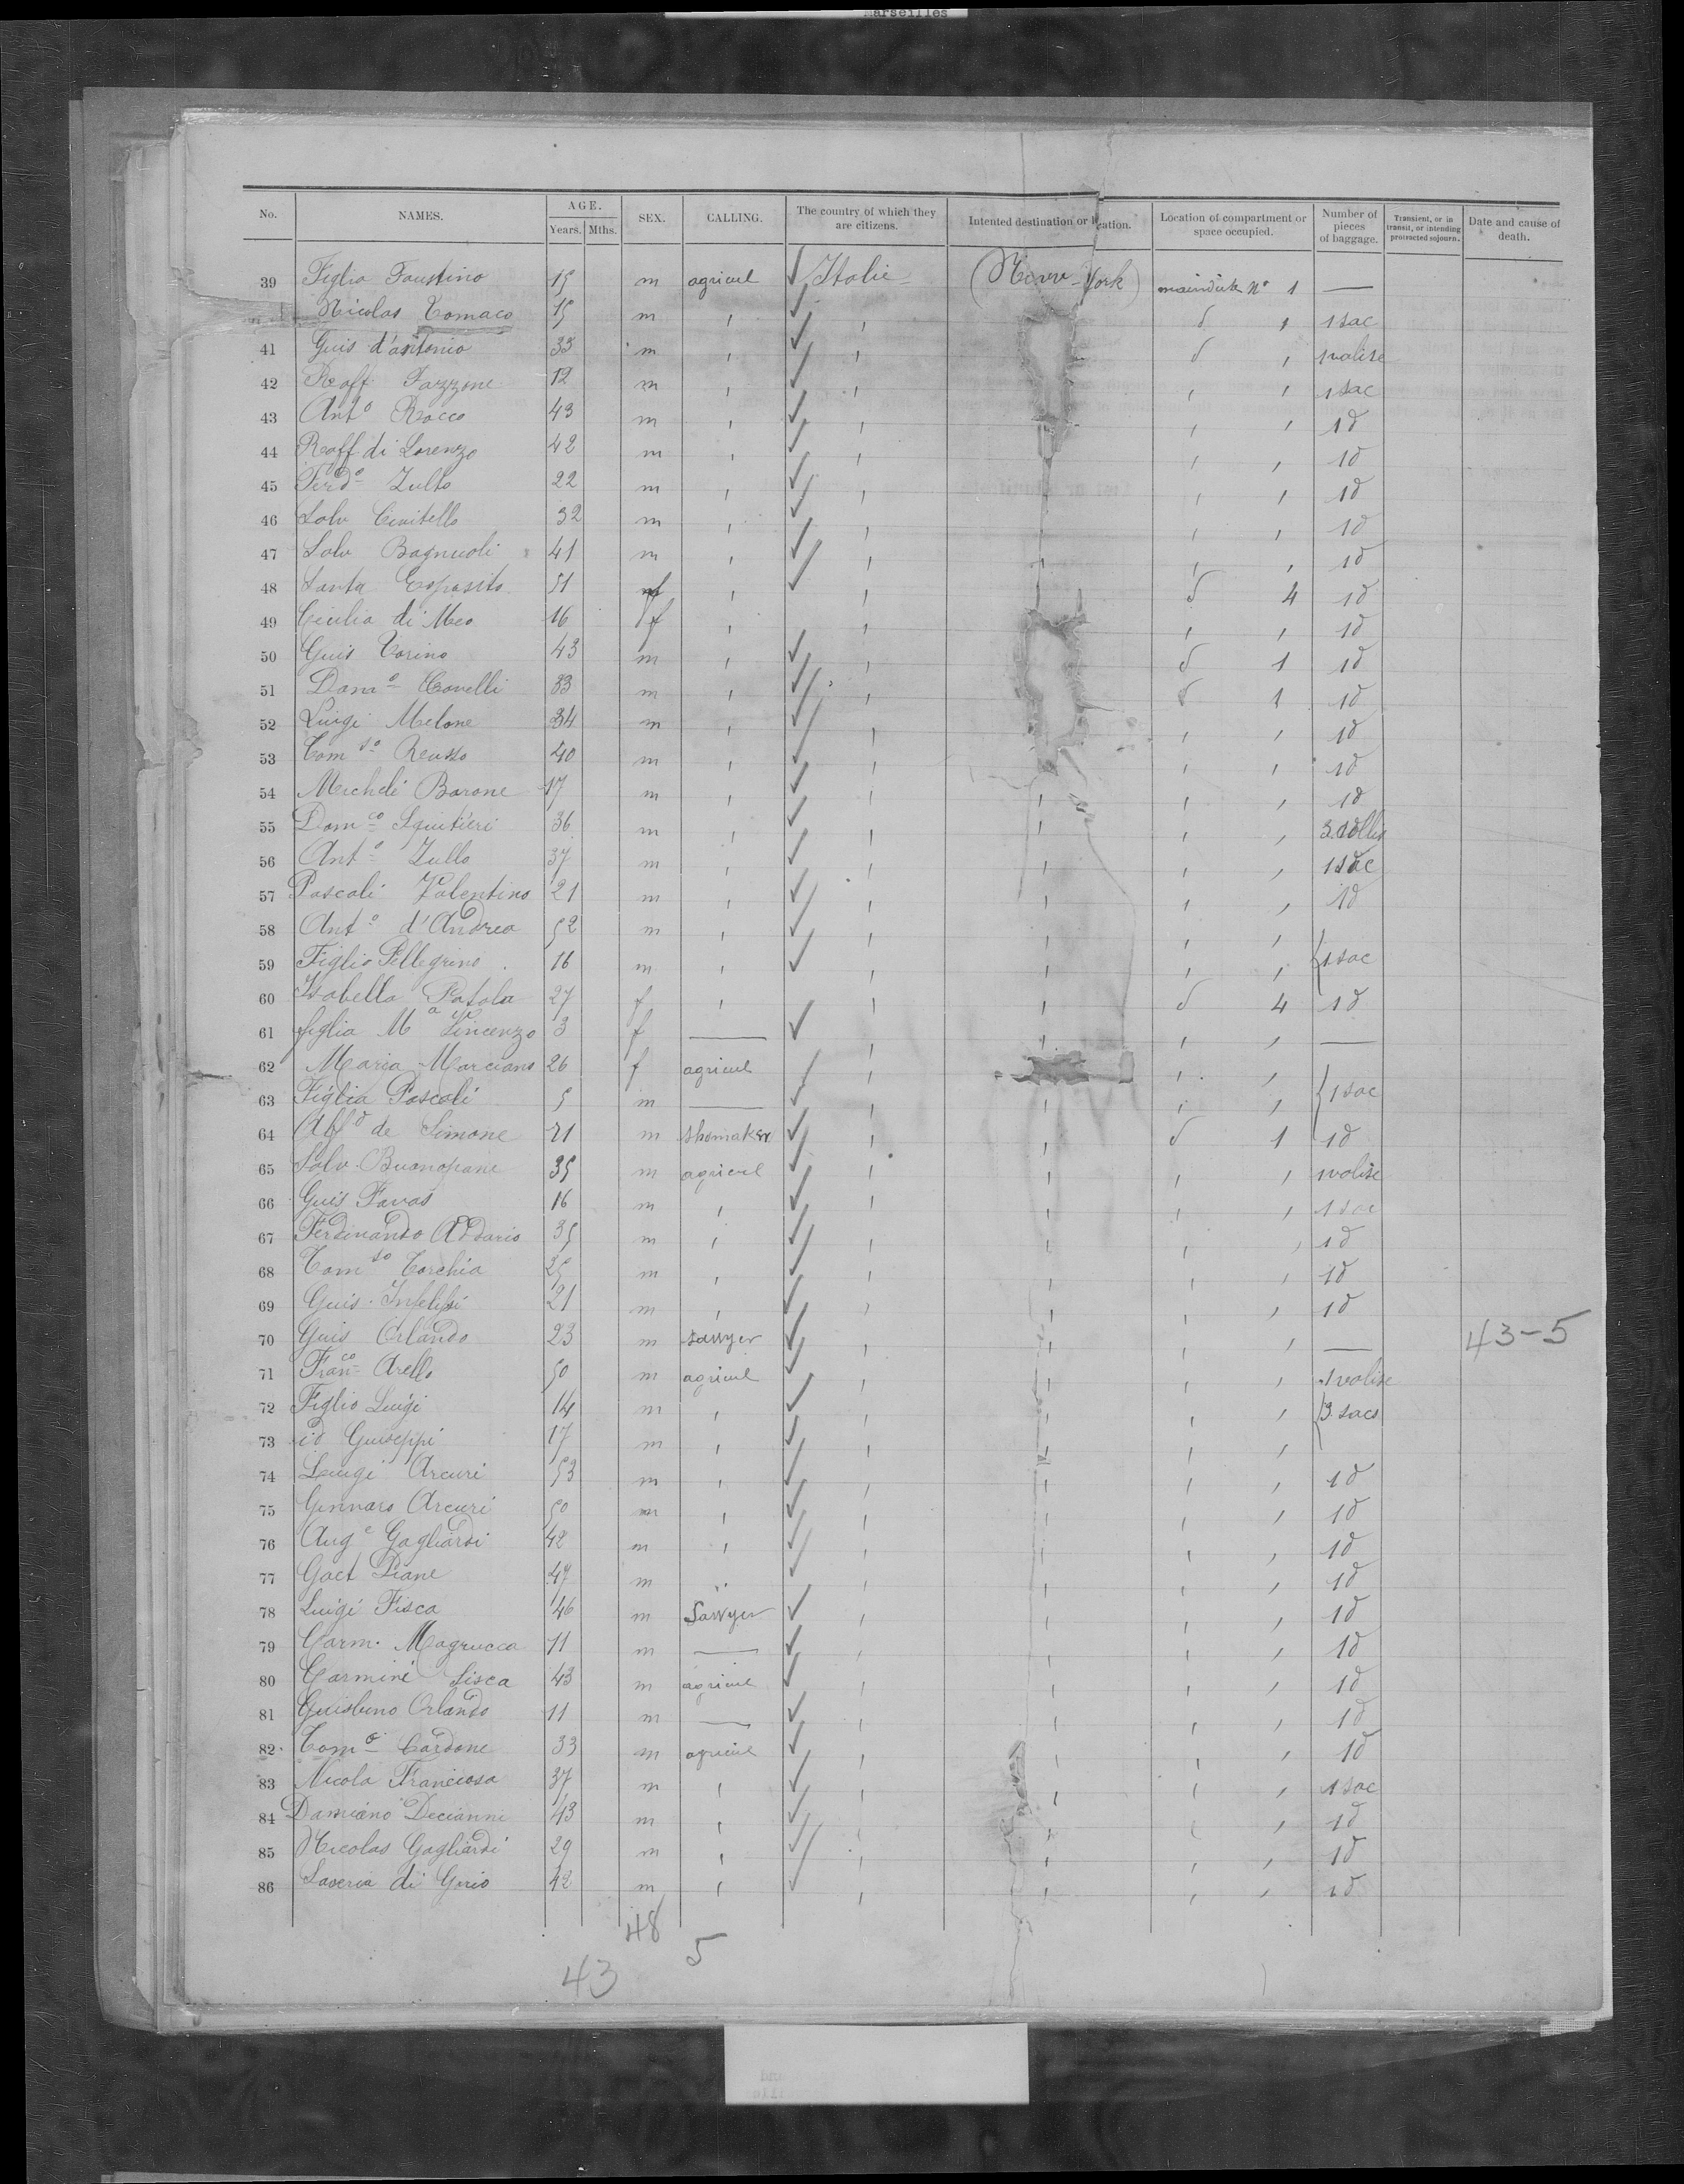 Marseilles
No. NAMES. AGE. Years. Mths. SEX. CALLING. The country of which they are citizens. Intented destination or location. Location of compartment or space occupied. Number of pieces of baggage. Transient, or in transit, or intending protracted sojourn. Date and cause of death.
39 Figlio Faustino 15 m agricul Italie (New-York) N° 1 —
Nicolas Tomaco 15 m 1 sac
41 Guis d'antonio 33 m 1 valise
42 Raff Fazzone 12 m 1 sac
43 Anto Rocco 43 m 1 d
44 Raff di Lorenzo 42 m 1 d
45 Ferdo Zullo 22 m 1 d
46 Salv Civitello 32 m 1 d
47 Salv Bagnuoli 41 m 1 d
48 Santa Esposito 51 f d 4 1 d
49 Cicilia di Meo 16 f 1 d
50 Guis Torino 43 m d 1 1 d
51 Donao Covelli 33 m d 1 1 d
52 Luigi Melone 34 m 1 d
53 Tomso Russo 40 m 1 d
54 Micheli Barone 17 m 1 d
55 Domco Squitieri 36 m 3 collis
56 Anto Zullo 37 m 1 sac
57 Pascali Valentino 21 m 1 d
58 Anto d'Andrea 52 m
59 Figlio Pellegrino 16 m 1 sac
60 Isabella Patala 27 f d 4 1 d
61 figlia Ma Vincenzo 3 f — —
62 Maria Marciano 26 f agricul
63 Figlia Pascali 5 m — 1 sac
64 Alfd de Simone 21 m shomaker d 1 1 d
65 Salv Buonopane 35 m agricul 1 valise
66 Guis Favas 16 m 1 sac
67 Ferdinando Addario 35 m 1 d
68 Tomso Torchia 25 m 1 d
69 Guis. 21 m 1 d
70 Guis Orlando 23 m sawyer — 43-5
71 Franco Arello 50 m agricul 1 valise
72 Figlio Luigi 14 m 3 sacs
73 id Guiseppi 17 m
74 Luigi Arcuri 53 m 1 d
75 Gennaro Arcuri 50 m 1 d
76 Auge Gagliardi 42 m 1 d
77 Gaet Piane 47 m 1 d
78 Luigi Fisca 46 m Sawyer 1 d
79 Carm. Magrucca 11 m — 1 d
80 Carmine Sisca 43 m agricul 1 d
81 Orlando 11 m — 1 d
82 Tomo Cardone 33 m agricul 1 d
83 Nicola Franciosa 37 m 1 sac
84 Damiano Decianni 43 m 1 d
85 Nicolas Gagliardi 29 m 1 d
86 Saveria di 42 m 1 d
48
5
43